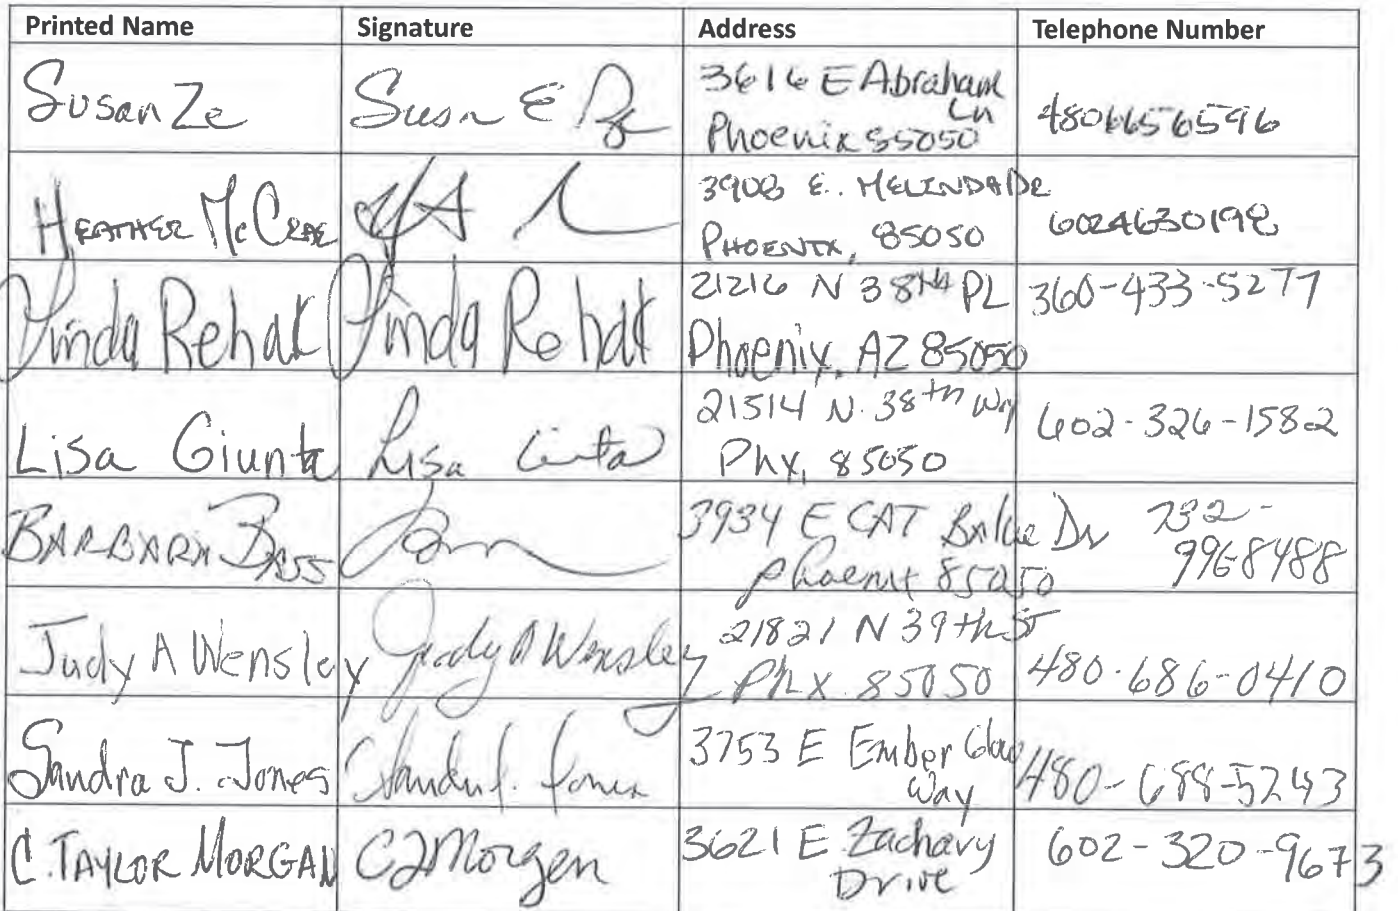 Printed Name Signature Address Telephone Number
Susan Ze Susn E 3616 E Abraham
Ln
Phoenix 85050 4806656596
HEATHER McCRAE 3908 E. MELINDA DR
PHOENIX, 85050 6024630198
Linda Rehak Linda Rehak 21216 N 38th PL 360-433-5277
Phoenix, AZ 85050
Lisa Giunta Lisa Giunta 21514 N. 38th Way
Phx, 85050 602-326-1582
BARBARA BASS 3934 E CAT Balue Dr 732-
Phoenix 85050 996-8488
Judy A Wensley Judy A Wensley 21821 N 39th ST
Phx 85050 480-686-0410
Sandra J. Jones Sandra J. Jones 3753 E Ember Glow
Way 480-688-5243
C. TAYLOR MORGAN CTMorgan 3621 E Zachary
Drive 602-320-9673